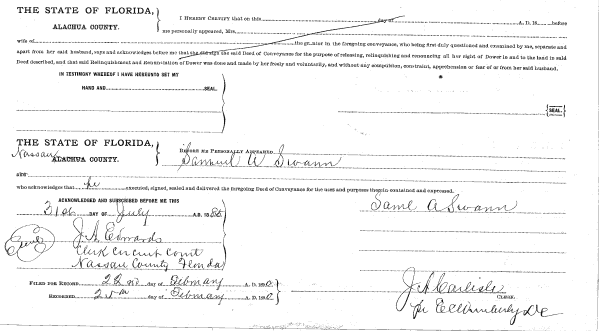 THE STATE OF FLORIDA,
ALACHUA COUNTY.
I HEREBY CERTIFY that on this day of A. D. 18 before
me personally appeared, Mrs.
wife of the grantor in the foregoing conveyance, who being first duly questioned and examined by me, separate and
apart from her said husband, says and acknowledges before me that she did sign the said Deed of Conveyance for the purpose of releasing, relinquishing and renouncing all her right of Dower in and to the land in said
Deed described, and that said Relinquishment and Renunciation of Dower was done and made by her freely and voluntarily, and without any compulsion, constraint, apprehension or fear of or from her said husband.
IN TESTIMONY WHEREOF I HAVE HEREUNTO SET MY
HAND AND SEAL.
SEAL.
THE STATE OF FLORIDA,
Nassau
ALACHUA COUNTY.
BEFORE ME PERSONALLY APPEARED
Samuel A Swann
and
who acknowledges that he executed, signed, sealed and delivered the foregoing Deed of Conveyance for the uses and purposes therein contained and expressed.
ACKNOWLEDGED AND SUBSCRIBED BEFORE ME THIS
31st DAY OF July A.D. 18
Saml A Swann
J. A. Edwards
Clerk Circuit Court
Nassau County Florida
FILED FOR RECORD 22nd day of Febuary A. D. 18
RECORDED day of Febuary A. D. 18
J A Carlisle
CLERK.
pr E C Wimberly DC